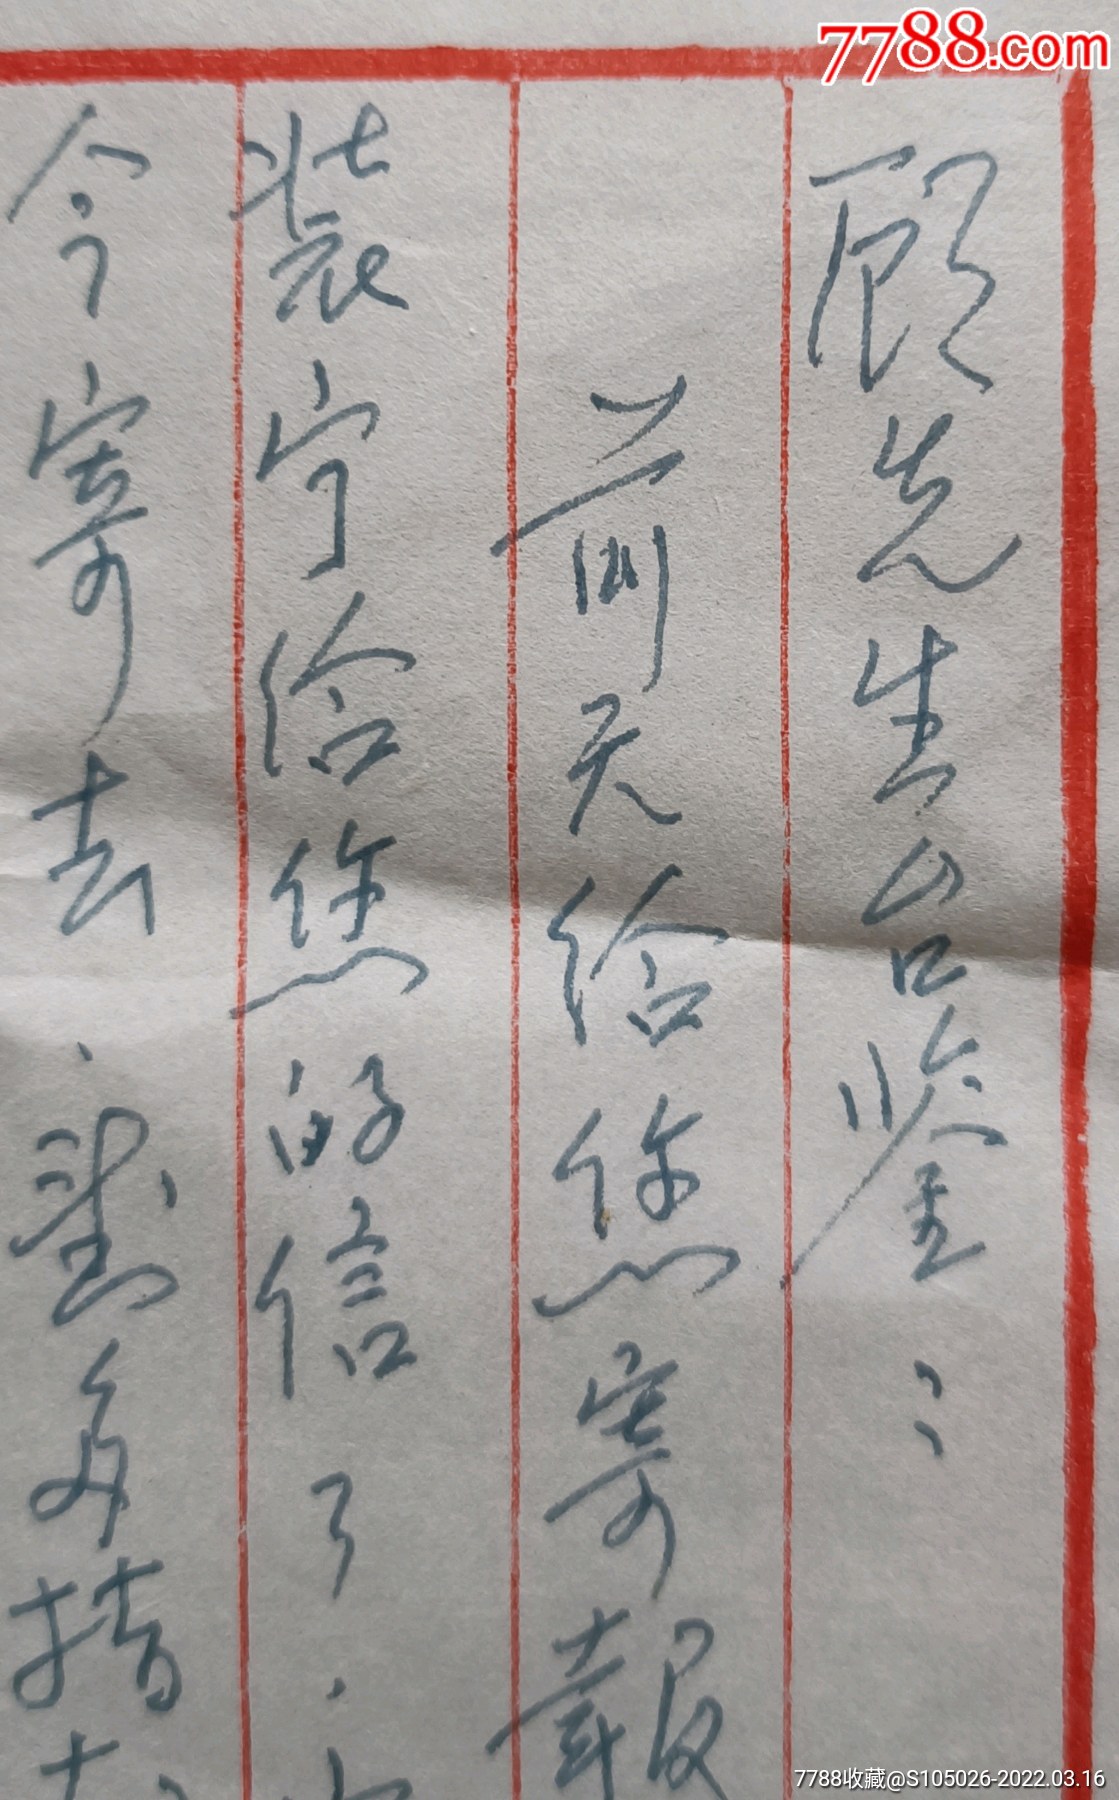 7788.com
顾先生台鉴：
前天给您寄報
装宁给您的信了.
今寄去.多指
7788收藏@S105026-2022.03.16